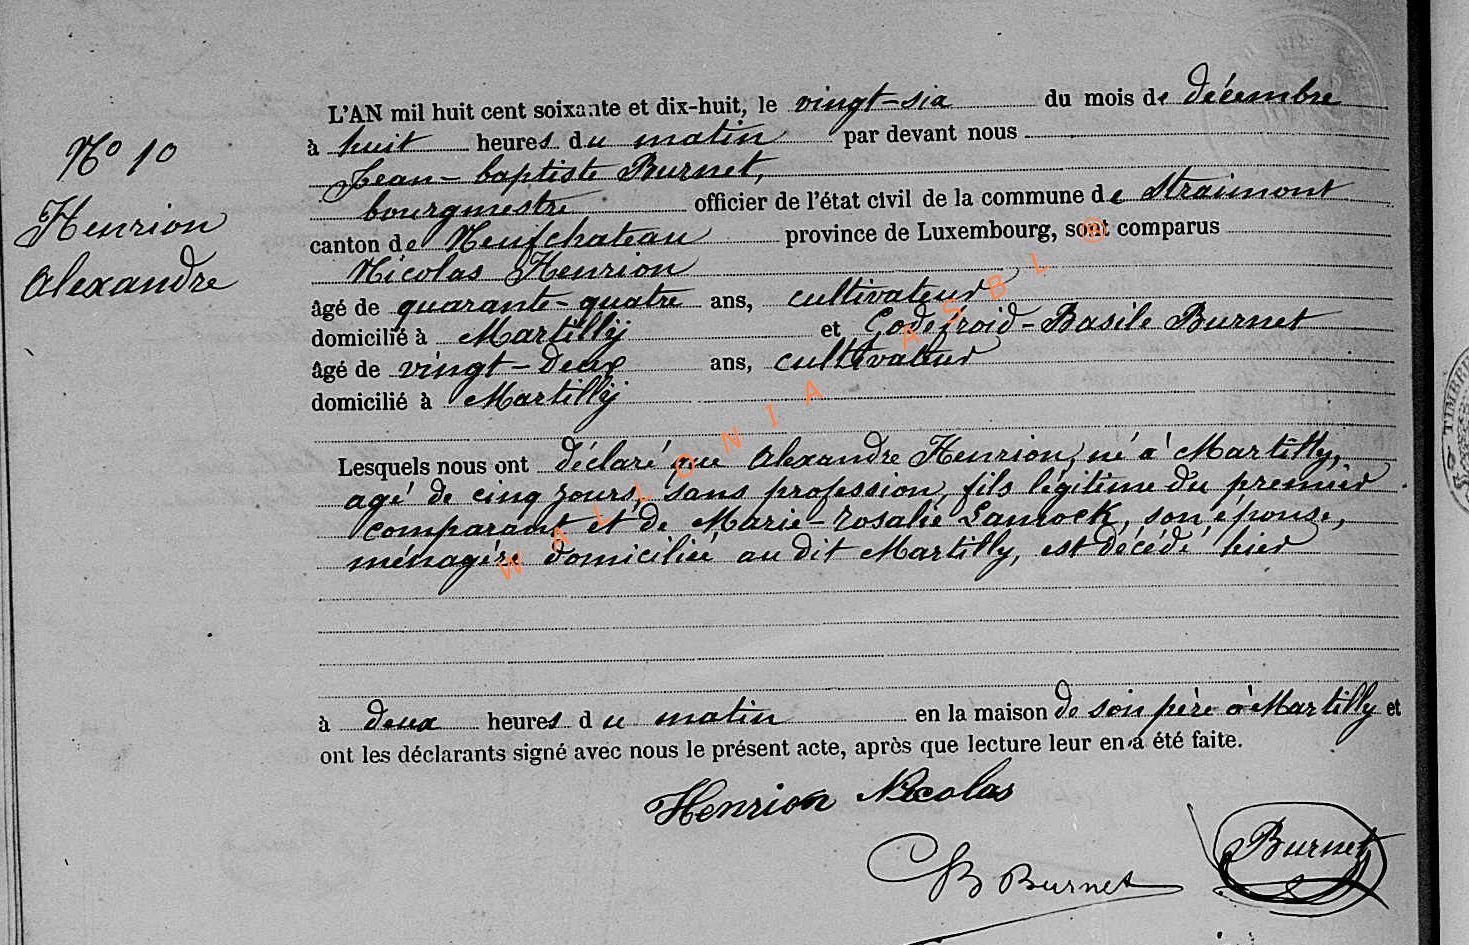 N° 10
Henrion
Alexandre
L'AN mil huit cent soixante et dix-huit, le vingt-six du mois de décembre
à huit heures du matin par devant nous
Jean-baptiste Burnet,
bourgmestre officier de l'état civil de la commune de Straimont
canton de Neufchateau province de Luxembourg, sont comparus
Nicolas Henrion
âgé de quarante-quatre ans, cultivateur
domicilié à Martilly et Godefroid-Basile Burnet
âgé de vingt-deux ans, cultivateur
domicilié à Martilly
Lesquels nous ont déclaré que Alexandre Henrion, né à Martilly,
agé de cinq jours, sans profession, fils légitime du premier
comparant et de Marie-Rosalie Lamock, son épouse,
ménagère domiciliée au dit Martilly, est décédé hier
à deux heures du matin en la maison de son père à Martilly et
ont les déclarants signé avec nous le présent acte, après que lecture leur en a été faite.
Henrion Nicolas
Burnet
GB Burnet
WALLONIA ASBL ®
TIMBRE